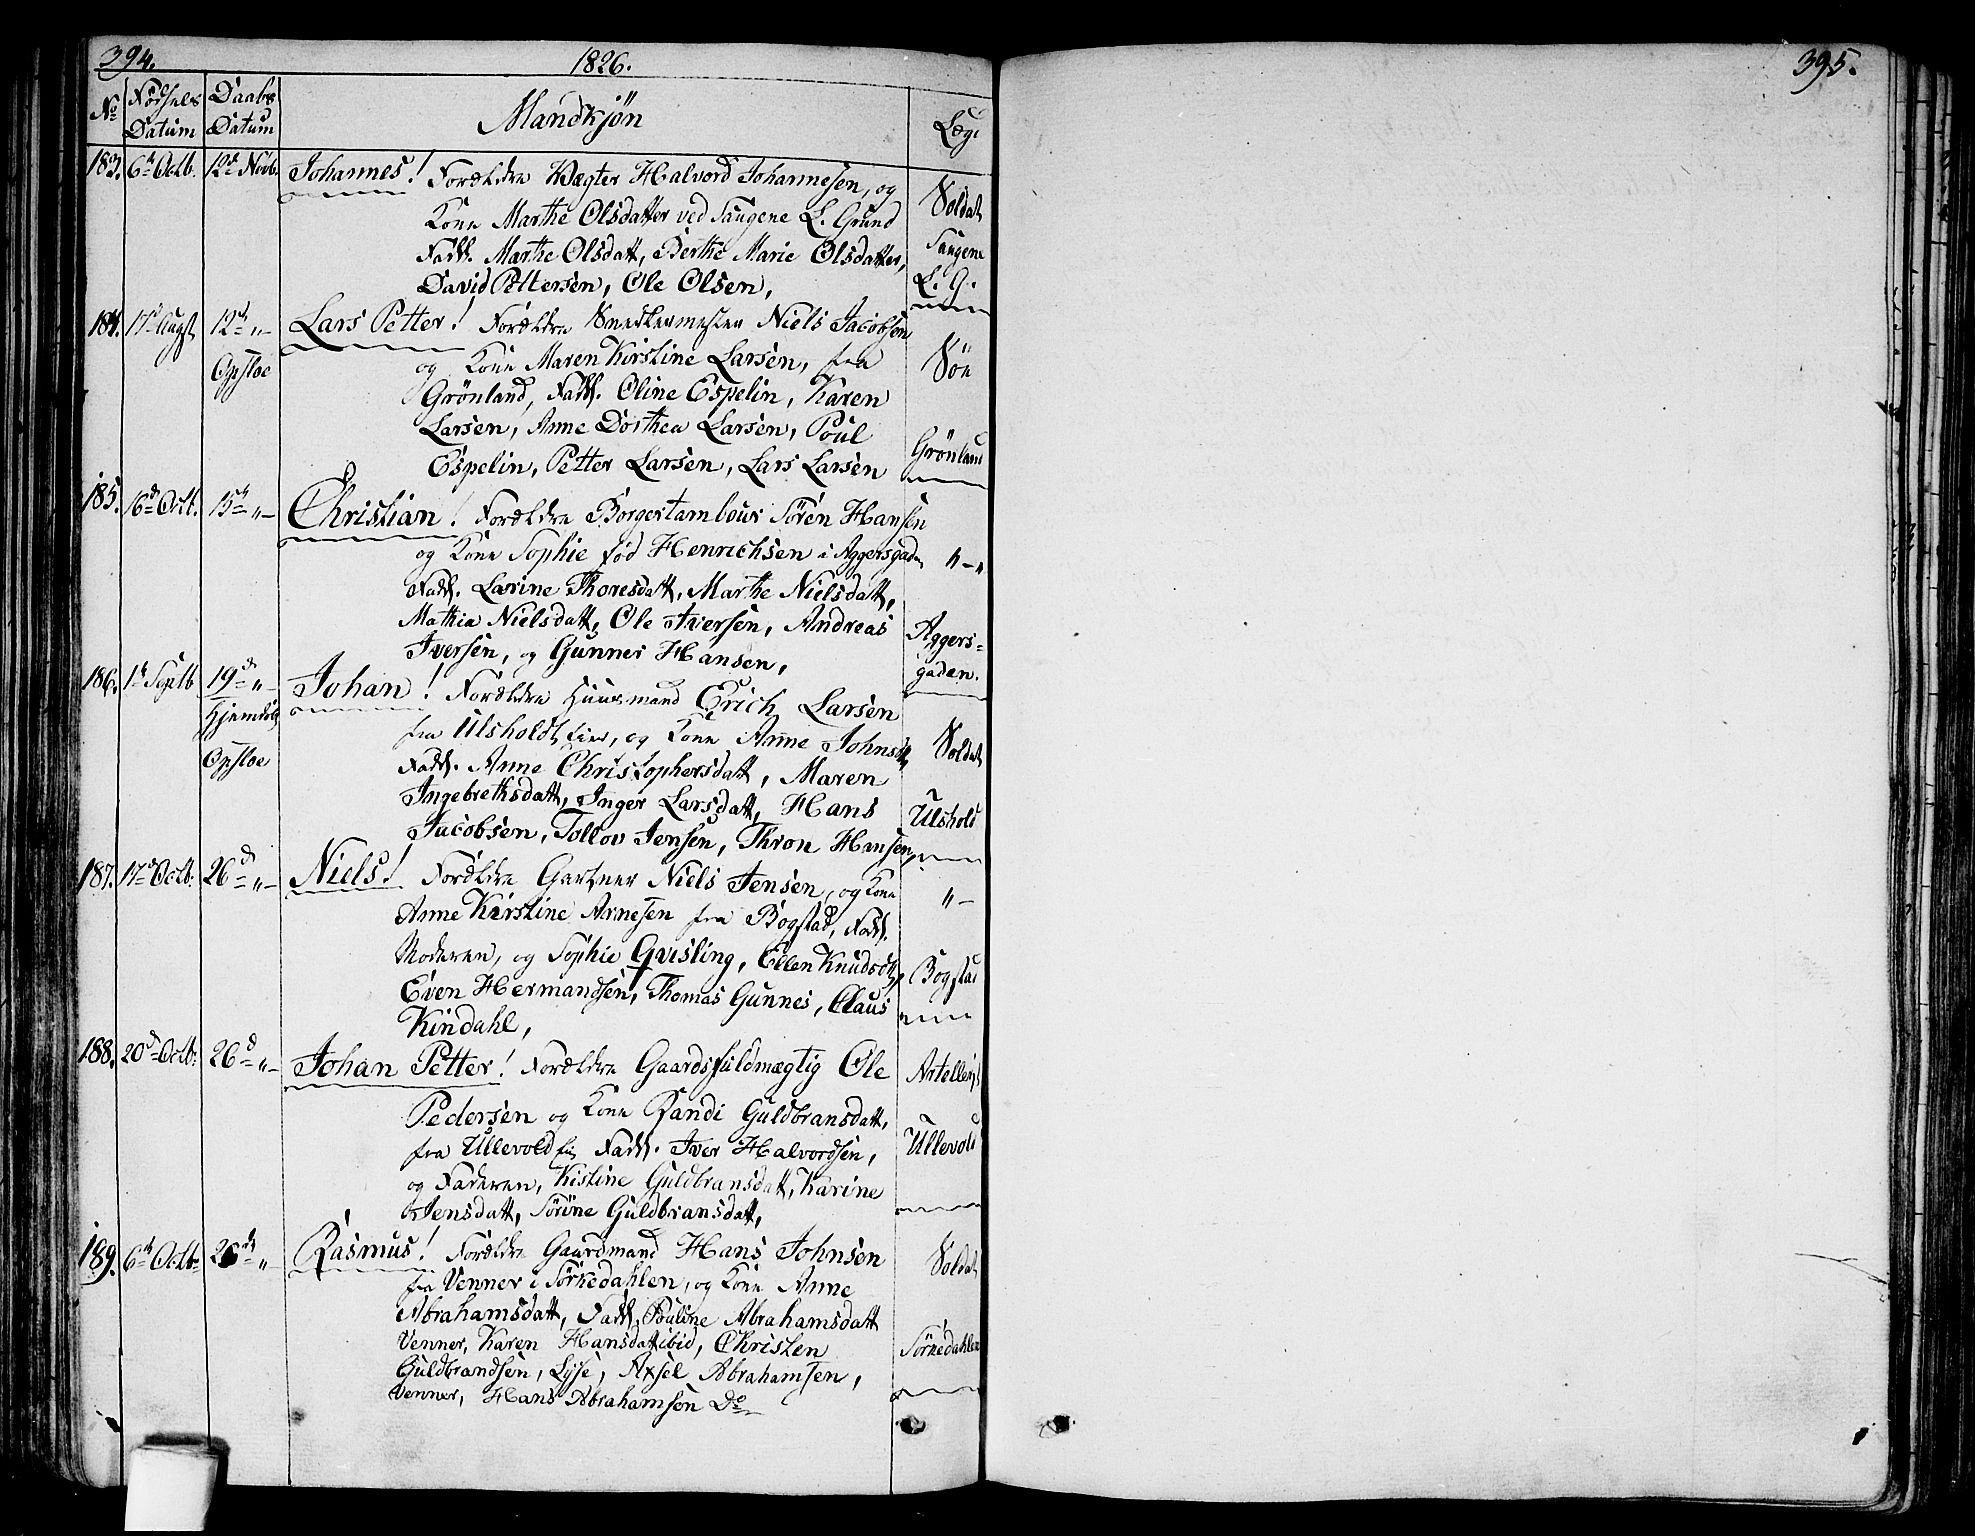 394.
1826.
No Fødsels Datum Daabs Datum Mandkjön Læg
183. 6te Octb. 12te Novb. Johannes! Forældre Vægter Halvord Johannesen, og
Kone Marthe Olsdatter ved Saugene L. Grund
Fadd. Marthe Olsdatt, Berthe Marie Olsdatter,
David Pettersen, Ole Olsen,
Soldat
Saugene
L. G.
184. 17de Augst 12te „ –
Opsloe
Lars Petter! Forældre Snedkermester Niels Jacobsen
og Kone Maren Kirstine Larsen, fra
Grönland, Fadd. Oline Espelin, Karen
Larsen, Anne Dorthea Larsen, Poul
Espelin, Petter Larsen, Lars Larsen
Söe
Grönland
185. 16de Oct. 15de „ – Christian! Forældre Borgertambour Sören Hansen
og Kone Sophie fød Henrichsen i Aggersgaden
Fadd. Lavine Thoresdatt, Marthe Nielsdatt,
Mathia Nielsdatt, Ole Iversen, Andreas
Iversen, og Gunner Hansen,
„ – „
Aggers-
gaden.
186. 1te Septb 19de „ –
Hjemdøbt
Opsloe
Johan! Forældre Huusmand Erich Larsen
fra Ulsholdt Eier, og Kone Anne Johnsdtt,
Fadd. Anne Christophersdatt, Maren
Ingebrethsdatt, Inger Larsdatt, Hans
Jacobsen, Tollov Jensen, Thron Hansen,
Soldat
Ulshold
187. 17de Octb. 26de „ – Niels! Forældre Gartner Niels Jensen, og Kone
Anne Kirstine Arnesen fra Bogstad, Fadd.
Moderen, og Sophie Qvisling, Ellen Knudsdtt,
Even Hermandsen, Thomas Gunnes, Claus
Kindahl,
„ –
Bogstad
188. 20de Octb. 26de „ – Johan Petter! Forældre Gaardsfuldmægtig Ole
Pedersen og Kone Randi Guldbransdatt,
fra Ullevold Fadd. Iver Halvordsen,
og Faderen, Kistine Guldbransdatt, Karine
Jensdatt, Sörine Guldbransdatt,
Ullevold
189. 6te Octb. 26de „ Rasmus! Forældre Gaardmand Hans Johnsen
fra Venner i Sörkedahlen, og Kone Anne
Abrahamsdatt, Fadd. Pouline Abrahamsdatt
Venner, Karen Hansdatt ibid, Christen
Guldbrandsen, Lyse, Axsel Abrahamsen,
Venner, Hans Abrahamsen Do
Soldat
Sörkedahlen
395.